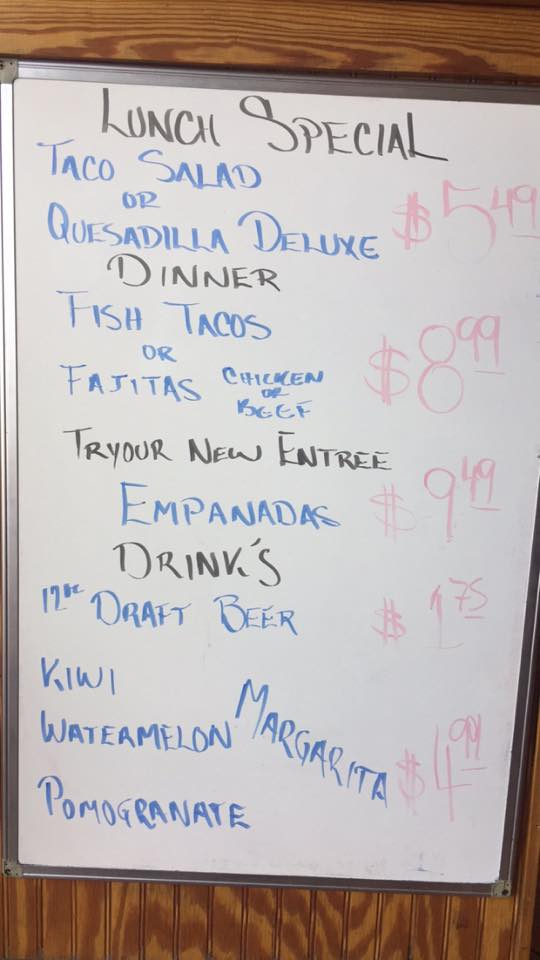 LUNCH SPECIAL
TACO SALAD
OR
QUESADILLA DELUXE $5.49
DINNER
FISH TACOS
OR
FAJITAS CHICKEN OR BEEF $8.99
TRYOUR NEW ENTREE
EMPANADAS $9.49
DRINK'S
12oz DRAFT BEER $1.75
KIWI
WATERMELON MARGARITA $4.99
POMOGRANATE